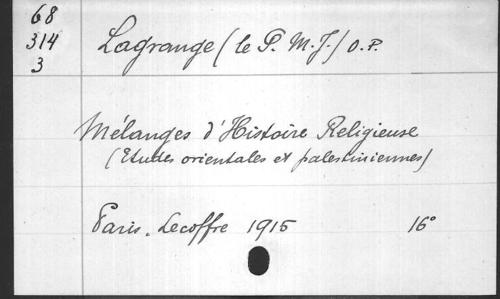 68
314
3
Lagrange (le P. M. J.) O.P.
Mélanges d'Histoire Religieuse
(Etudes orientales et palestiniennes)
Paris. Lecoffre 1915 16°